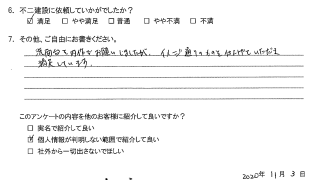 6. 不二建設に依頼していかがでしたか?
☑ 満足 □ やや満足 □ 普通 □ やや不満 □ 不満
7. その他、ご自由にお書きください。
洗面台を お願いしましたが、イメージ通りのものを 仕上げていただき
満足しています。
このアンケートの内容を他のお客様に紹介して良いですか?
□ 実名で紹介して良い
☑ 個人情報が判明しない範囲で紹介して良い
□ 社外から一切出さないでほしい
2020年 11月 3日